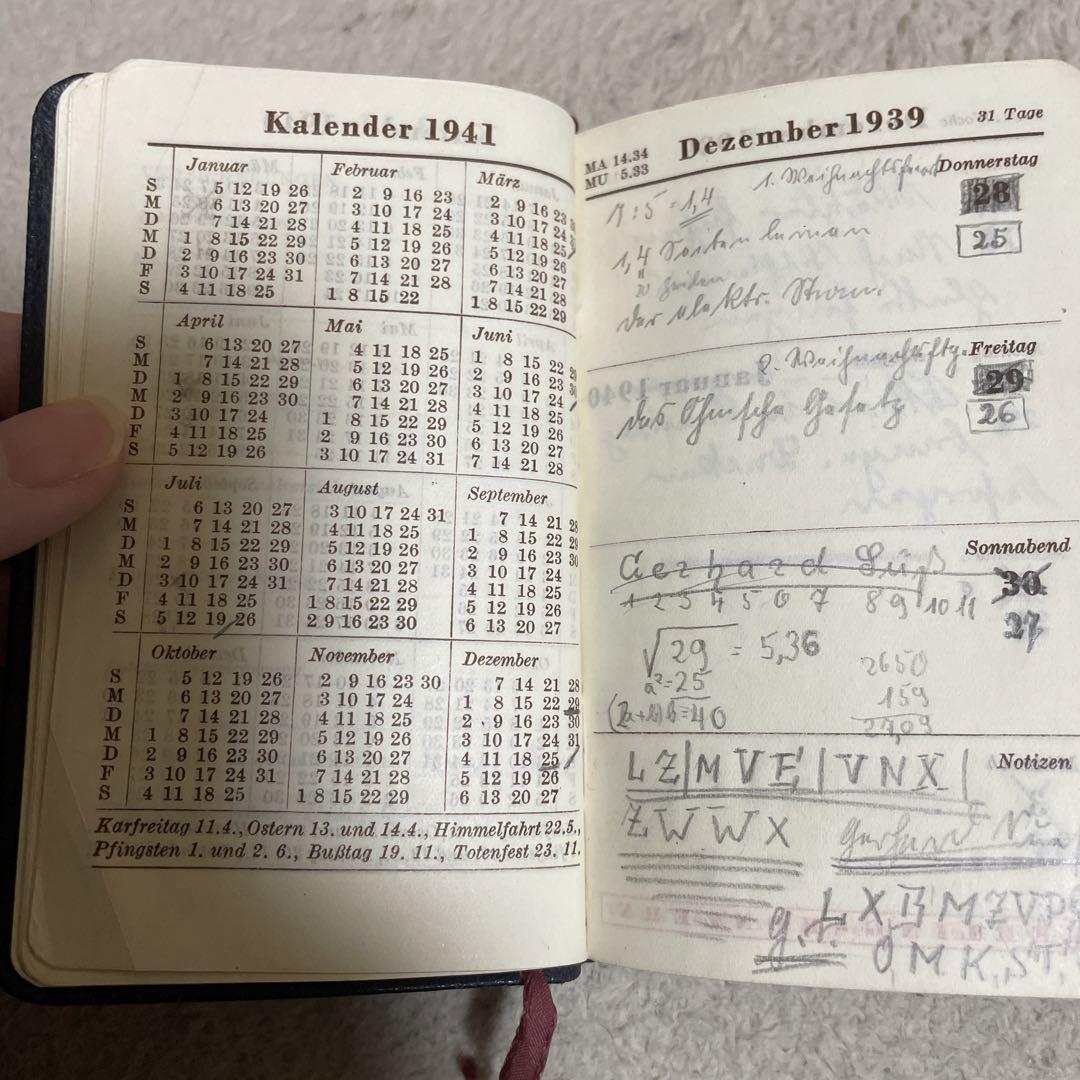 Kalender 1941
Januar
S 5 12 19 26
M 6 13 20 27
D 7 14 21 28
M 1 8 15 22 29
D 2 9 16 23 30
F 3 10 17 24 31
S 4 11 18 25
Februar
2 9 16 23
3 10 17 24
4 11 18 25
5 12 19 26
6 13 20 27
7 14 21 28
1 8 15 22
März
2 9 16 23
3 10 17 24
4 11 18 25
5 12 19 26
6 13 20 27
7 14 21 28
1 8 15 22 29
April
S 6 13 20 27
M 7 14 21 28
D 1 8 15 22 29
M 2 9 16 23 30
D 3 10 17 24
F 4 11 18 25
S 5 12 19 26
Mai
4 11 18 25
5 12 19 26
6 13 20 27
7 14 21 28
1 8 15 22 29
2 9 16 23 30
3 10 17 24 31
Juni
1 8 15 22 29
2 9 16 23 30
3 10 17 24
4 11 18 25
5 12 19 26
6 13 20 27
7 14 21 28
Juli
S 6 13 20 27
M 7 14 21 28
D 1 8 15 22 29
M 2 9 16 23 30
D 3 10 17 24 31
F 4 11 18 25
S 5 12 19 26
August
3 10 17 24 31
4 11 18 25
5 12 19 26
6 13 20 27
7 14 21 28
1 8 15 22 29
2 9 16 23 30
September
7 14 21 28
1 8 15 22 29
2 9 16 23 30
3 10 17 24
4 11 18 25
5 12 19 26
6 13 20 27
Oktober
S 5 12 19 26
M 6 13 20 27
D 7 14 21 28
M 1 8 15 22 29
D 2 9 16 23 30
F 3 10 17 24 31
S 4 11 18 25
November
2 9 16 23 30
3 10 17 24
4 11 18 25
5 12 19 26
6 13 20 27
7 14 21 28
1 8 15 22 29
Dezember
7 14 21 28
1 8 15 22 29
2 9 16 23 30
3 10 17 24 31
4 11 18 25
5 12 19 26
6 13 20 27
Karfreitag 11.4., Ostern 13. und 14.4., Himmelfahrt 22.5.,
Pfingsten 1. und 2. 6., Bußtag 19. 11., Totenfest 23. 11.
MA 14.34
MU 5.33
Dezember 1939
31 Tage
1. Weihnachtsfeiert
Donnerstag
28
25
7 : 5 = 1,4
1,4 Seiten lernen
der elektr. Strom.
2. Weihnachtsftg.
Freitag
29
26
das Ohmsche Gesetz
Sonnabend
30
27
Gerhard Süß
1 2 3 4 5 6 7 8 9 10 11
√29 = 5,36
a²=25
(2a+b)b=40
2650
159
2709
Notizen
LZ|MVE|VNX|
ZWWX
Gerhard
LXEMZVP
g.r.
OMK,ST,